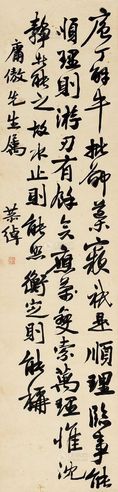 庖丁解牛批郤導窾祇是順理臨事能
順理則游刃有餘矣應萬變索萬理惟沈
靜者能之故水止則能照衡定則能稱
庸傲先生屬
恭綽